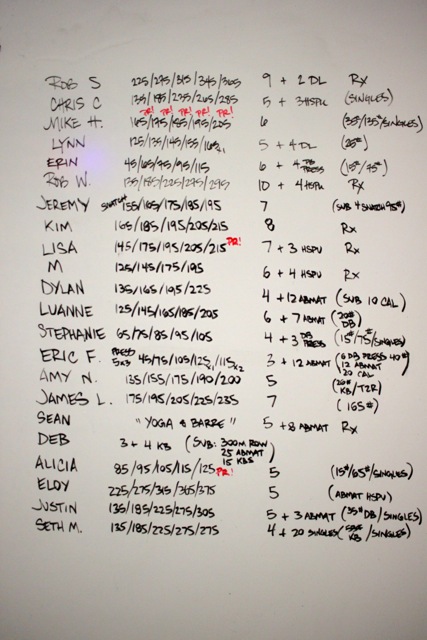 ROB S 225/275/315/345/365 9 + 2 DL Rx
CHRIS C 135/185/235/265/285 5 + 3 HSPU (SINGLES)
PR! PR! PR! PR! PR!
MIKE H. 165/175/185/195/205 6 (35#/135#/SINGLES)
LYNN 125/135/145/155/165x1 5 + 4 DL (25#)
ERIN 45/65/75/95/115 6 + 4 DB PRESS (15#/75#)
ROB W. 135/185/225/275/295 10 + 4 HSPU Rx
JEREMY SNATCH 155/165/175/185/195 7 (SUB 4 SNATCH 95#)
KIM 165/185/195/205/215 8 Rx
LISA 145/175/195/205/215 PR! 7 + 3 HSPU Rx
M 125/145/175/195 6 + 4 HSPU Rx
DYLAN 135/165/195/225 4 + 12 ABMAT (SUB 10 CAL)
LUANNE 125/145/165/185/205 6 + 7 ABMAT (20# DB)
STEPHANIE 65/75/85/95/105 4 + 3 DB PRESS (15#/75#/SINGLES)
ERIC F. PRESS 5x3 45/75/105/125x1/115x2 3 + 12 ABMAT (6 DB PRESS 40# 12 ABMAT 20 CAL)
AMY N. 135/155/175/190/200 5 (20# KB/T2R)
JAMES L. 175/195/205/225/235 7 (165#)
SEAN "YOGA & BARRE" 5 + 8 ABMAT Rx
DEB 3 + 4 KB (SUB: 300M ROW 25 ABMAT 15 KBS)
ALICIA 85/95/105/115/125 PR! 5 (15#/65#/SINGLES)
ELOY 225/275/315/365/375 5 (ABMAT HSPU)
JUSTIN 135/185/225/275/305 5 + 3 ABMAT (35# DB/SINGLES)
SETH M. 135/185/225/275/275 4 + 20 SINGLES (KB/SINGLES)